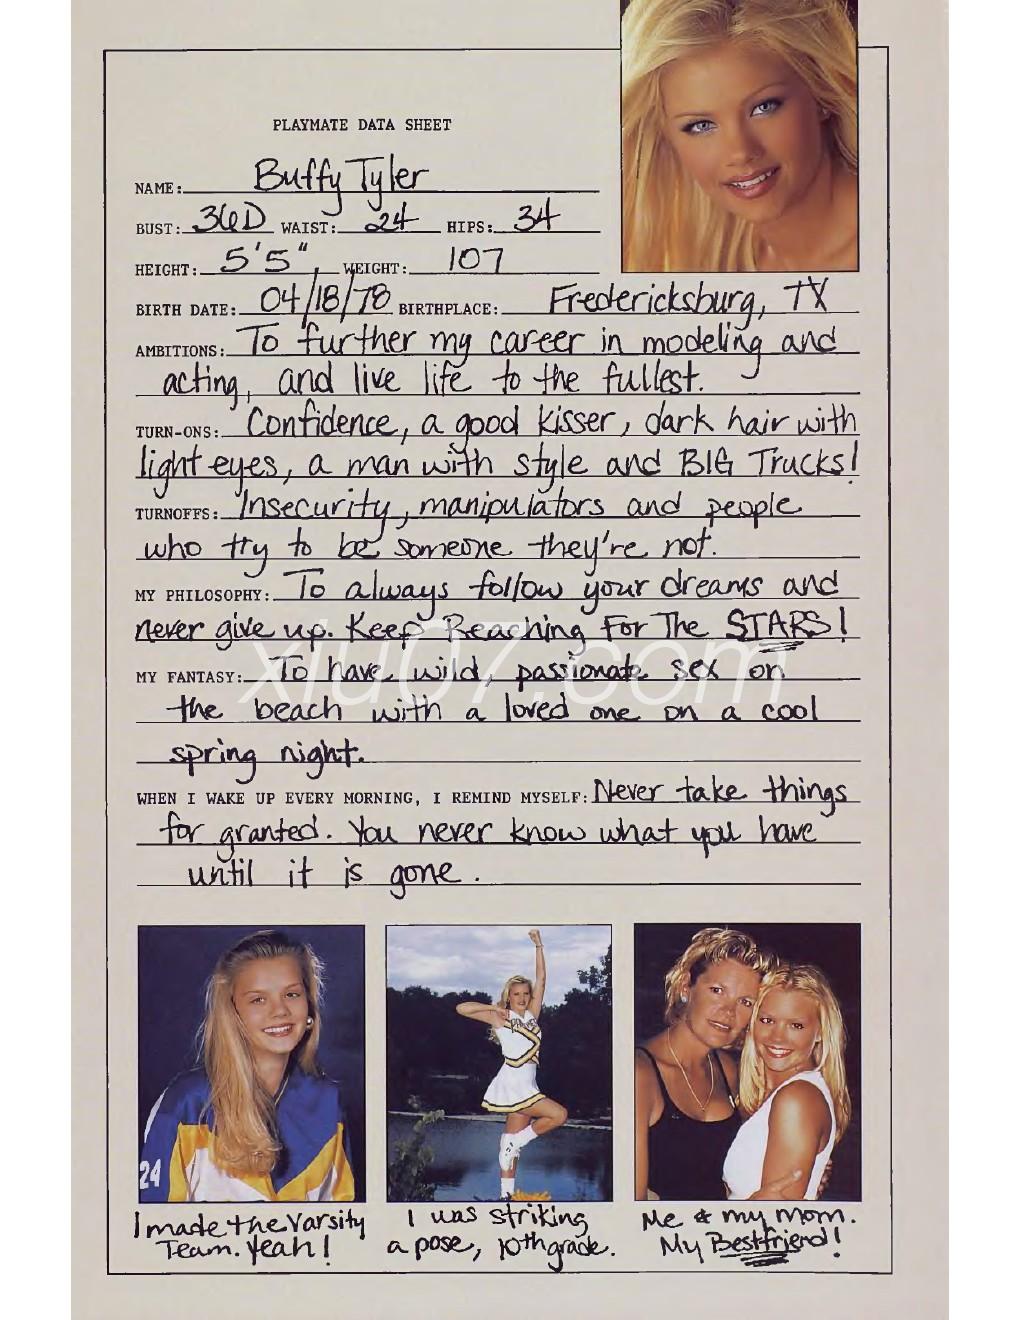 PLAYMATE DATA SHEET
NAME: Buffy Tyler
BUST: 36D WAIST: 24 HIPS: 34
HEIGHT: 5'5" WEIGHT: 107
BIRTH DATE: 04/18/78 BIRTHPLACE: Fredericksburg, TX
AMBITIONS: To further my career in modeling and
acting, and live life to the fullest.
TURN-ONS: Confidence, a good kisser, dark hair with
light eyes, a man with style and BIG Trucks!
TURNOFFS: Insecurity, manipulators and people
who try to be someone they're not.
MY PHILOSOPHY: To always follow your dreams and
never give up. Keep Reaching For The STARS!
xiu07.com
MY FANTASY: To have wild, passionate sex on
the beach with a loved one on a cool
spring night.
WHEN I WAKE UP EVERY MORNING, I REMIND MYSELF: Never take things
for granted. You never know what you have
until it is gone.
24
I made the Varsity
Team. Yeah!
I was striking
a pose, 10th grade.
Me & my mom.
My Bestfriend!